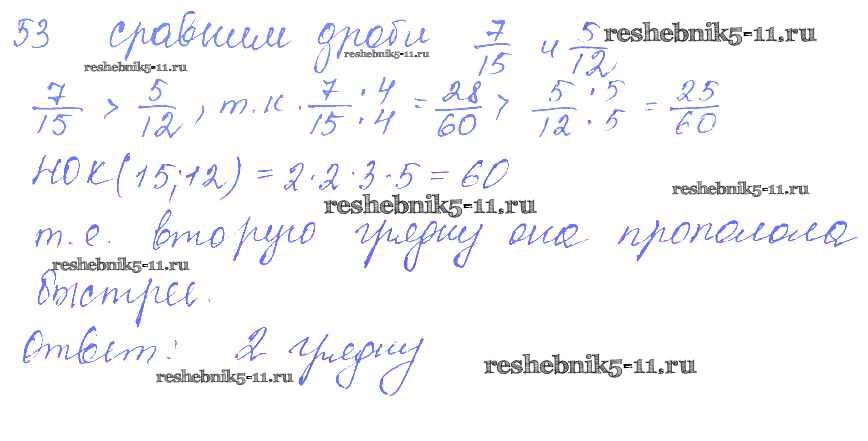 53 сравним дроби 7/15 и 5/12 reshebnik5-11.ru
reshebnik5-11.ru reshebnik5-11.ru
7/15 > 5/12, т.к. 7·4/15·4 = 28/60 > 5·5/12·5 = 25/60
НОК(15;12) = 2·2·3·5 = 60
reshebnik5-11.ru reshebnik5-11.ru
т.е. вторую грядку она прополола
reshebnik5-11.ru
быстрее.
Ответ: 2 грядку
reshebnik5-11.ru reshebnik5-11.ru